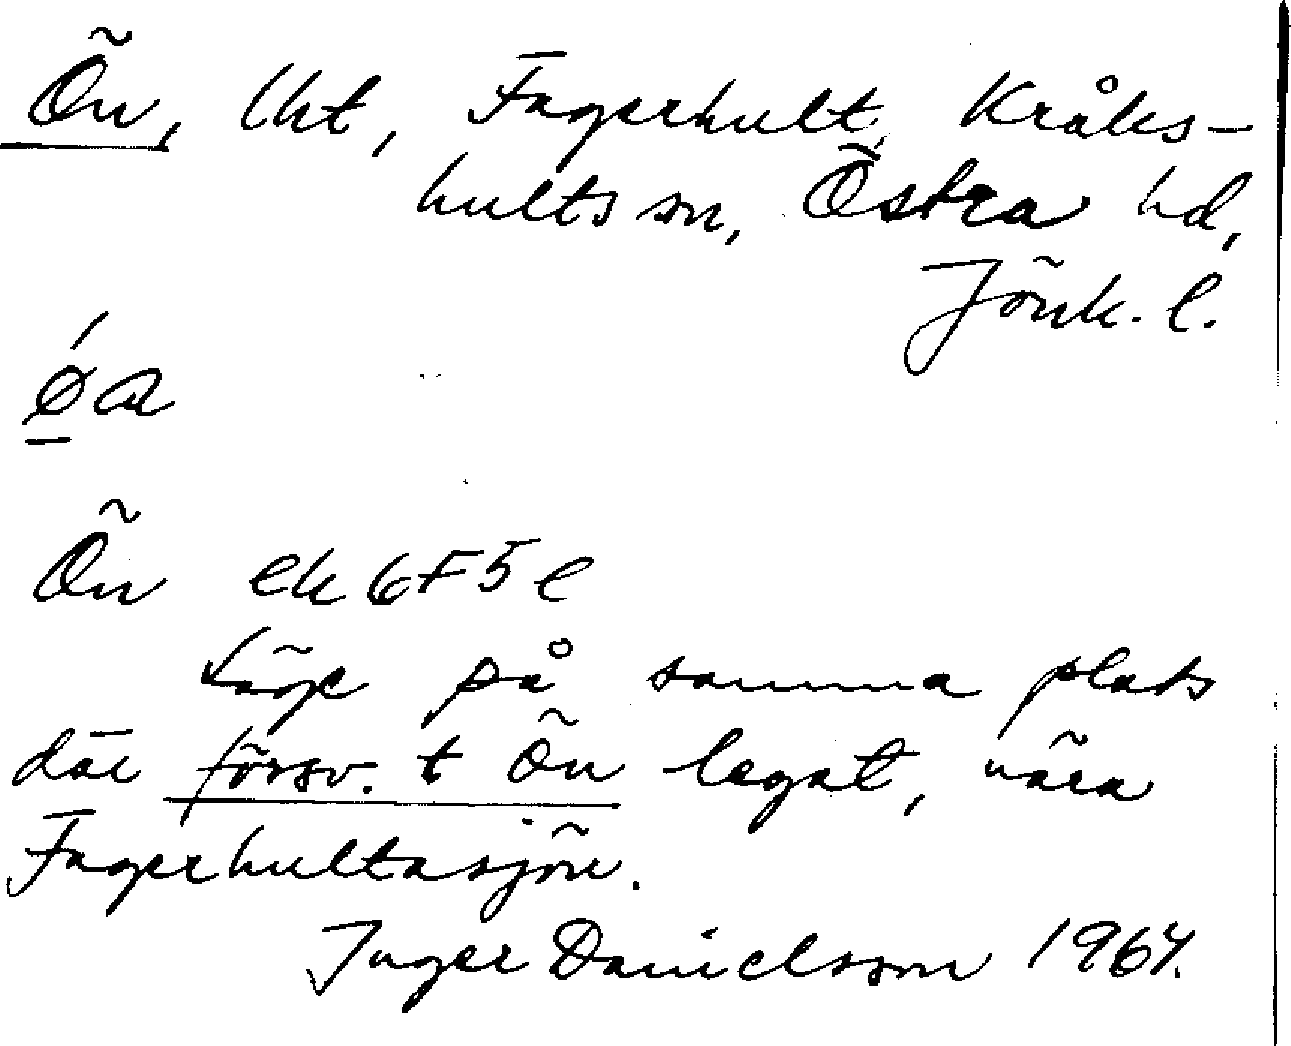 Ön, lht, Fagerhult, Kråks-
hults sn, Östra hd,
Jönk. l.
ǿa
Ön ek 6F5e
Läge på samma plats
där försv. t Ön legat, nära
Fagerhultasjön.
Inger Danielsson 1967.